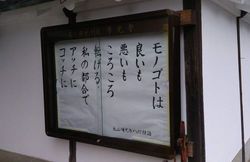 モノゴトは
良いも
悪いも
ころころ
転げる
私の都合で
アッチに
コッチに